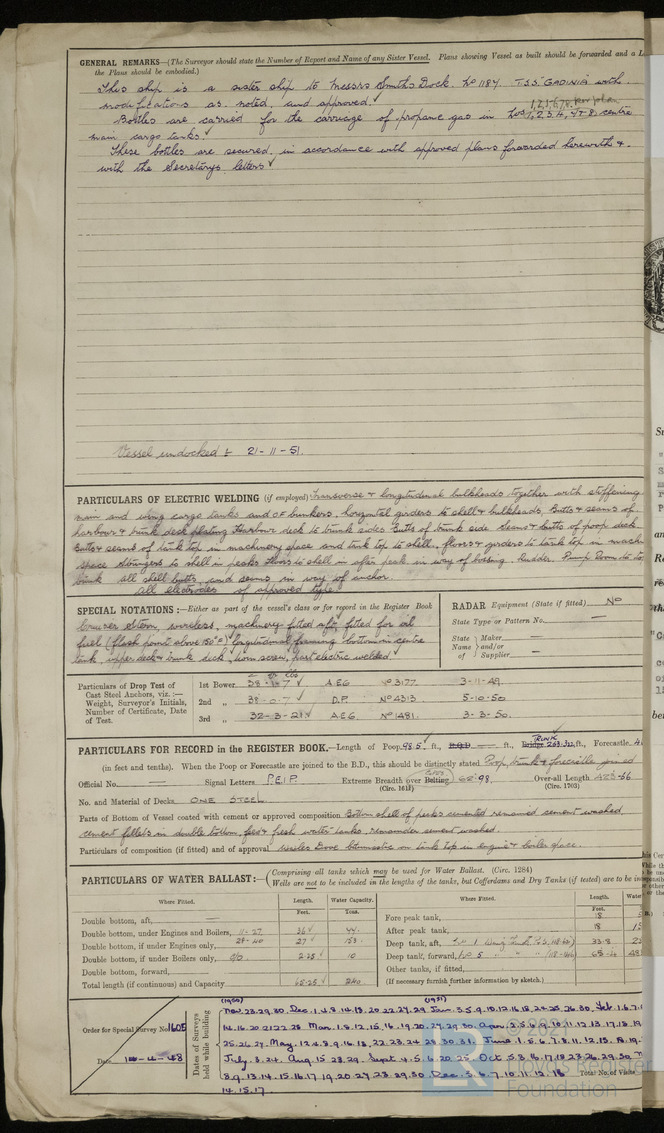 GENERAL REMARKS—(The Surveyor should state the Number of Report and Name of any Sister Vessel. Plans showing Vessel as built should be forwarded and a
the Plans should be embodied.)
This ship is a sister ship to Messrs Smiths Dock. No 1184. T.S.S. "GADINIA" with
modifications as noted, and approved.
Bottles are carried for the carriage of propane gas in Nos 1,2,3,4, 7+8, centre
main cargo tanks.
These bottles are secured in accordance with approved plans forwarded herewith &
with the Secretarys letters
Vessel undocked 21-11-51.
PARTICULARS OF ELECTRIC WELDING (if employed) Transverse & longitudinal bulkheads together with stiffening
main and wing cargo tanks and O.F. bunkers, horizontal girders to shell & bulkheads, Butts & seams of
harbour & trunk deck plating Harbour deck to trunk sides Butts of trunk side Seams & butts of poop deck.
Butts & seams of tank top in machinery space and tank top to shell, floors & girders to tank top in mach
space Stringers to shell in peaks floors to shell in after peak in way of bossing. Rudder. Pump Room to
trunk all shell butts, and seams in way of anchor.
all electrodes of approved type
SPECIAL NOTATIONS:—Either as part of the vessel's class or for record in the Register Book
Cruiser Stern, wireless, machinery fitted aft, fitted for oil
fuel (flash point above 150°F) longitudinal framing bottom in centre
tank, upper deck & trunk deck, part electric welded
RADAR Equipment (State if fitted) No
State Type or Pattern No. —
State Name of { Maker —
and/or
Supplier —
Particulars of Drop Test of Cast Steel Anchors, viz.:—Weight, Surveyor's Initials, Number of Certificate, Date of Test.
1st Bower 38-1-7 A.E.G No 3177 3-11-49.
2nd „ 38-0-7 D.P. No 4313. 5-10-50
3rd „ 32-3-21 A.E.G. No 1481. 3-3-50.
PARTICULARS FOR RECORD in the REGISTER BOOK.—Length of Poop 98.5 ft., R.Q.D. — ft., TRUNK Bridge ft., Forecastle
(in feet and tenths). When the Poop or Forecastle are joined to the B.D., this should be distinctly stated Poop, trunk & forecastle joined
Official No. — Signal Letters P.E.I.P. Extreme Breadth over Belting .98. Over-all Length
(Circ. 1618) (Circ. 1703)
No. and Material of Decks ONE STEEL
Parts of Bottom of Vessel coated with cement or approved composition Bottom shell of peaks cemented remained cement washed
cement fillets in double bottom, feed & fresh water tanks. remainder cement washed.
Particulars of composition (if fitted) and of approval Wailes Dove Bitumastic on tank top in engine & boiler space.
PARTICULARS OF WATER BALLAST:—(Comprising all tanks which may be used for Water Ballast. (Circ. 1284)
Wells are not to be included in the lengths of the tank, but Cofferdams and Dry Tanks (if tested) are to be
Where Fitted. Length. Water Capacity. Where Fitted. Length. Water
Feet. Tons. Feet.
Double bottom, aft, — Fore peak tank, 18
Double bottom, under Engines and Boilers, 11-27 36 44 After peak tank, 18
Double bottom, if under Engines only, 28-40 27 153 Deep tank, aft, 33.8
Double bottom, if under Boilers only, 2.25 10 Deep tank, forward, No 5
Double bottom, forward, Other tanks, if fitted,
Total length (if continuous) and Capacity 65.25 240 (If necessary furnish further information by sketch.)
Order for Special Survey No. 1605
Date 14-4-48
Dates of Surveys held while building
(1950) (1951)
Nov. 23.29.30 Dec. 1.4.8.14.18.20.22.27.29 Jan. 3.5.9.10.12.16.18.24.25.26.30 Feb. 1.6.7.
14.16.20.21.22.28 Mar. 1.8.12.15.16.19.20.27.29.30 April 2.5.6.9.10.11.12.13.17.18.19
25.26.27. May. 1.2.4.8.9.16.18.22.23.24.28.30.31. June 1.5.6.7.8.11.12.15.18.19.
July. 3.24. Aug. 15.23.29. Sept. 4.5.6.20.25. Oct. 5.3.16.17.18.23.26.29.30
8.9.13.14.15.16.17.19.20.27.28.29.30 Dec. 5.6.7.10.11.12.18 Total No. of Visits
14.15.17.
© 2021
Lloyd's Register
Foundation